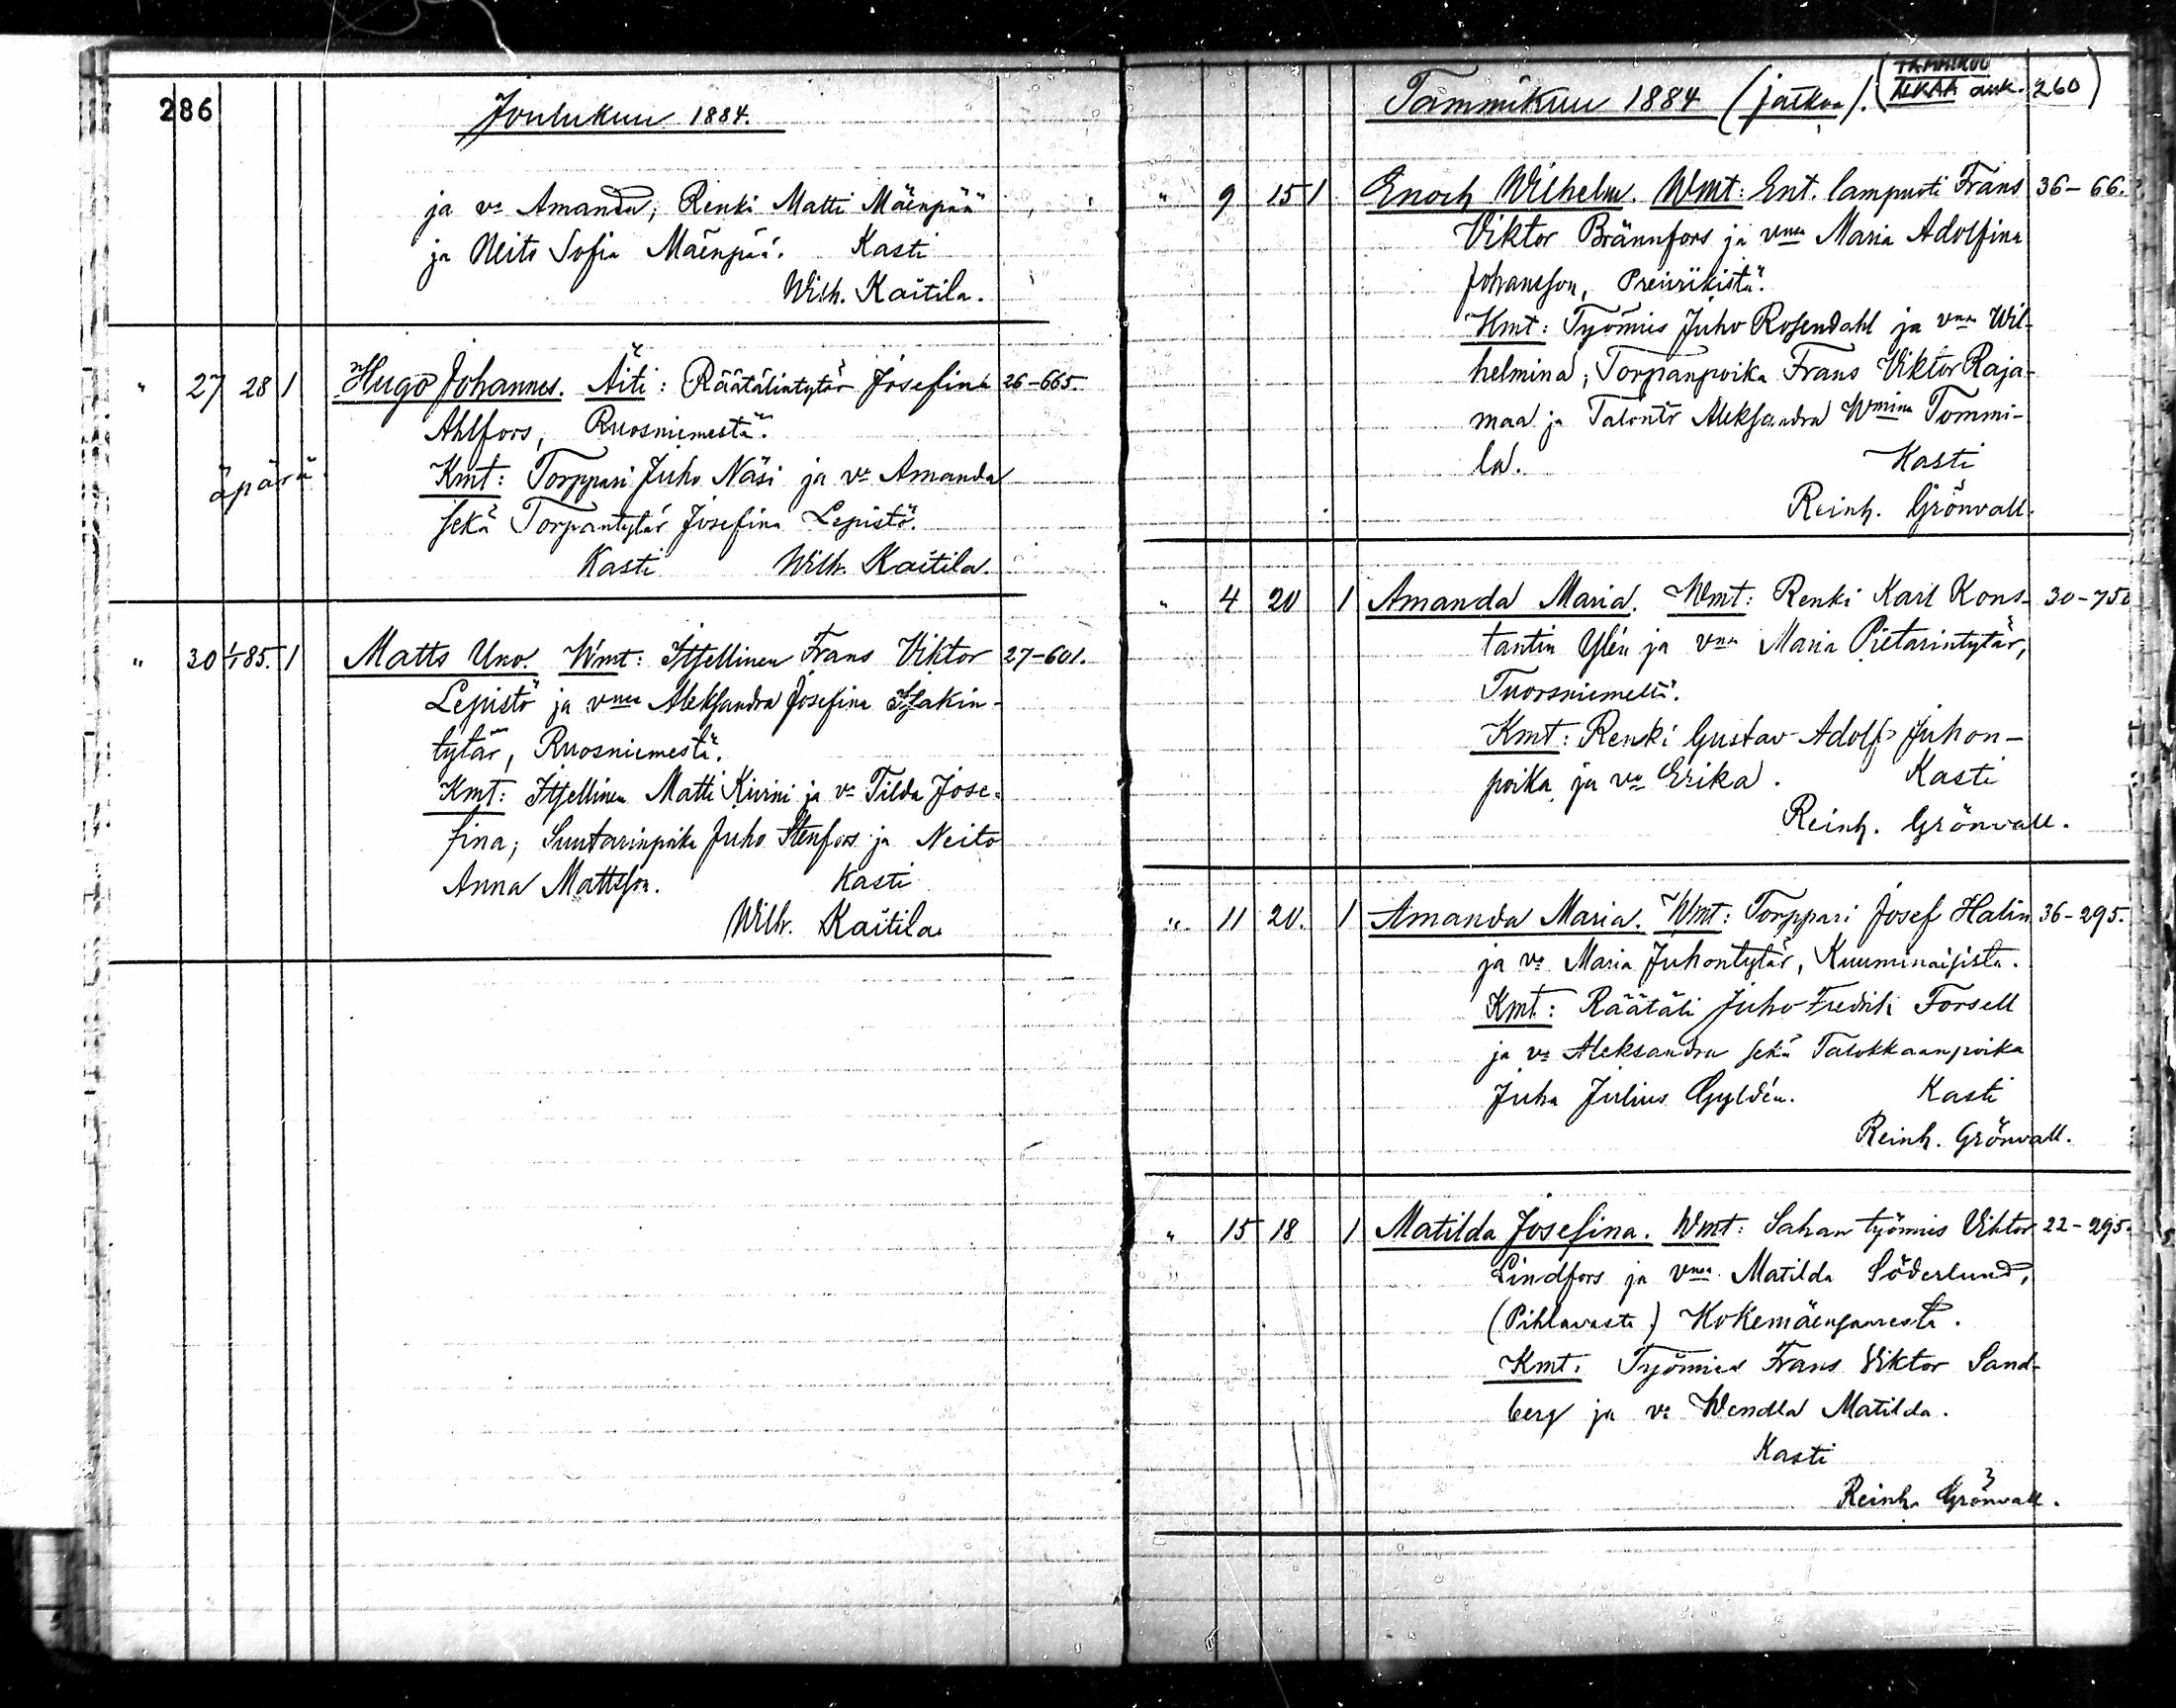 286
Joulukuu 1884.
ja vo Amanda; Renki Matti Mäenpää
ja Neito Sofia Mäenpää. Kasti
Wilh. Kaitila.
" 27 28 1 Hugo Johannes. Äiti: Räätälintytär Josefina 26-665.
Ahlfors, Ruosniemestä.
äpärä
Kmt: Torppari Juho Näsi ja vo Amanda
sekä Torpantytär Josefina Lepistö.
Kasti Wilh. Kaitila.
" 30 1/1 85. 1 Matts Uno. Wmt: Itsellinen Frans Viktor 27-601.
Lepistö ja vmsa Aleksandra Josefina Isakin-
tytär, Ruosniemestä.
Kmt: Itsellinen Matti Kivini ja vo Tilda Jose-
fina; Suutarinpoika Juho Stenfors ja Neito
Anna Mattsson. Kasti
Wilh. Kaitila
Tammikuu 1884 (jatkoa). (TAMMIKUU ALKAA auk. 260)
" 9 15 1 Enoch Wilhelm. Wmt: Ent. lampuoti Frans 36-66.
Viktor Brännfors ja vmsa Maria Adolfina
Johansson, Preiviikistä.
Kmt: Työmies Juho Rosendahl ja vmsa Wil-
helmina; Torpanpoika Frans Viktor Raja-
maa ja Talontr Aleksandra Wmina Tommi-
la. Kasti
Reinh. Grönvall.
" 4 20 1 Amanda Maria. Wmt: Renki Karl Kons- 30-750
tantin Ylén ja vmsa Maria Pietarintytär,
Tuorsniemeltä.
Kmt: Renki Gustav Adolf Juhon-
poika ja vo Erika. Kasti
Reinh. Grönvall.
" 11 20. 1 Amanda Maria. Wmt: Torppari Josef Halin 36-295.
ja vo Maria Juhontytär, Kuuminaisista.
Kmt: Räätäli Juho Fredrik Forsell
ja vo Aleksandra sekä Talokkaanpoika
Juha Julius Gyldén. Kasti
Reinh. Grönvall.
" 15 18 1 Matilda Josefina. Wmt: Sahan työmies Viktor 22-295.
Lindfors ja vmsa Matilda Söderlund,
(Pihlavasta) Kokemäensaaresta.
Kmt: Työmies Frans Viktor Sand-
berg ja vo Wendla Matilda.
Kasti
Reinh. Grönvall.